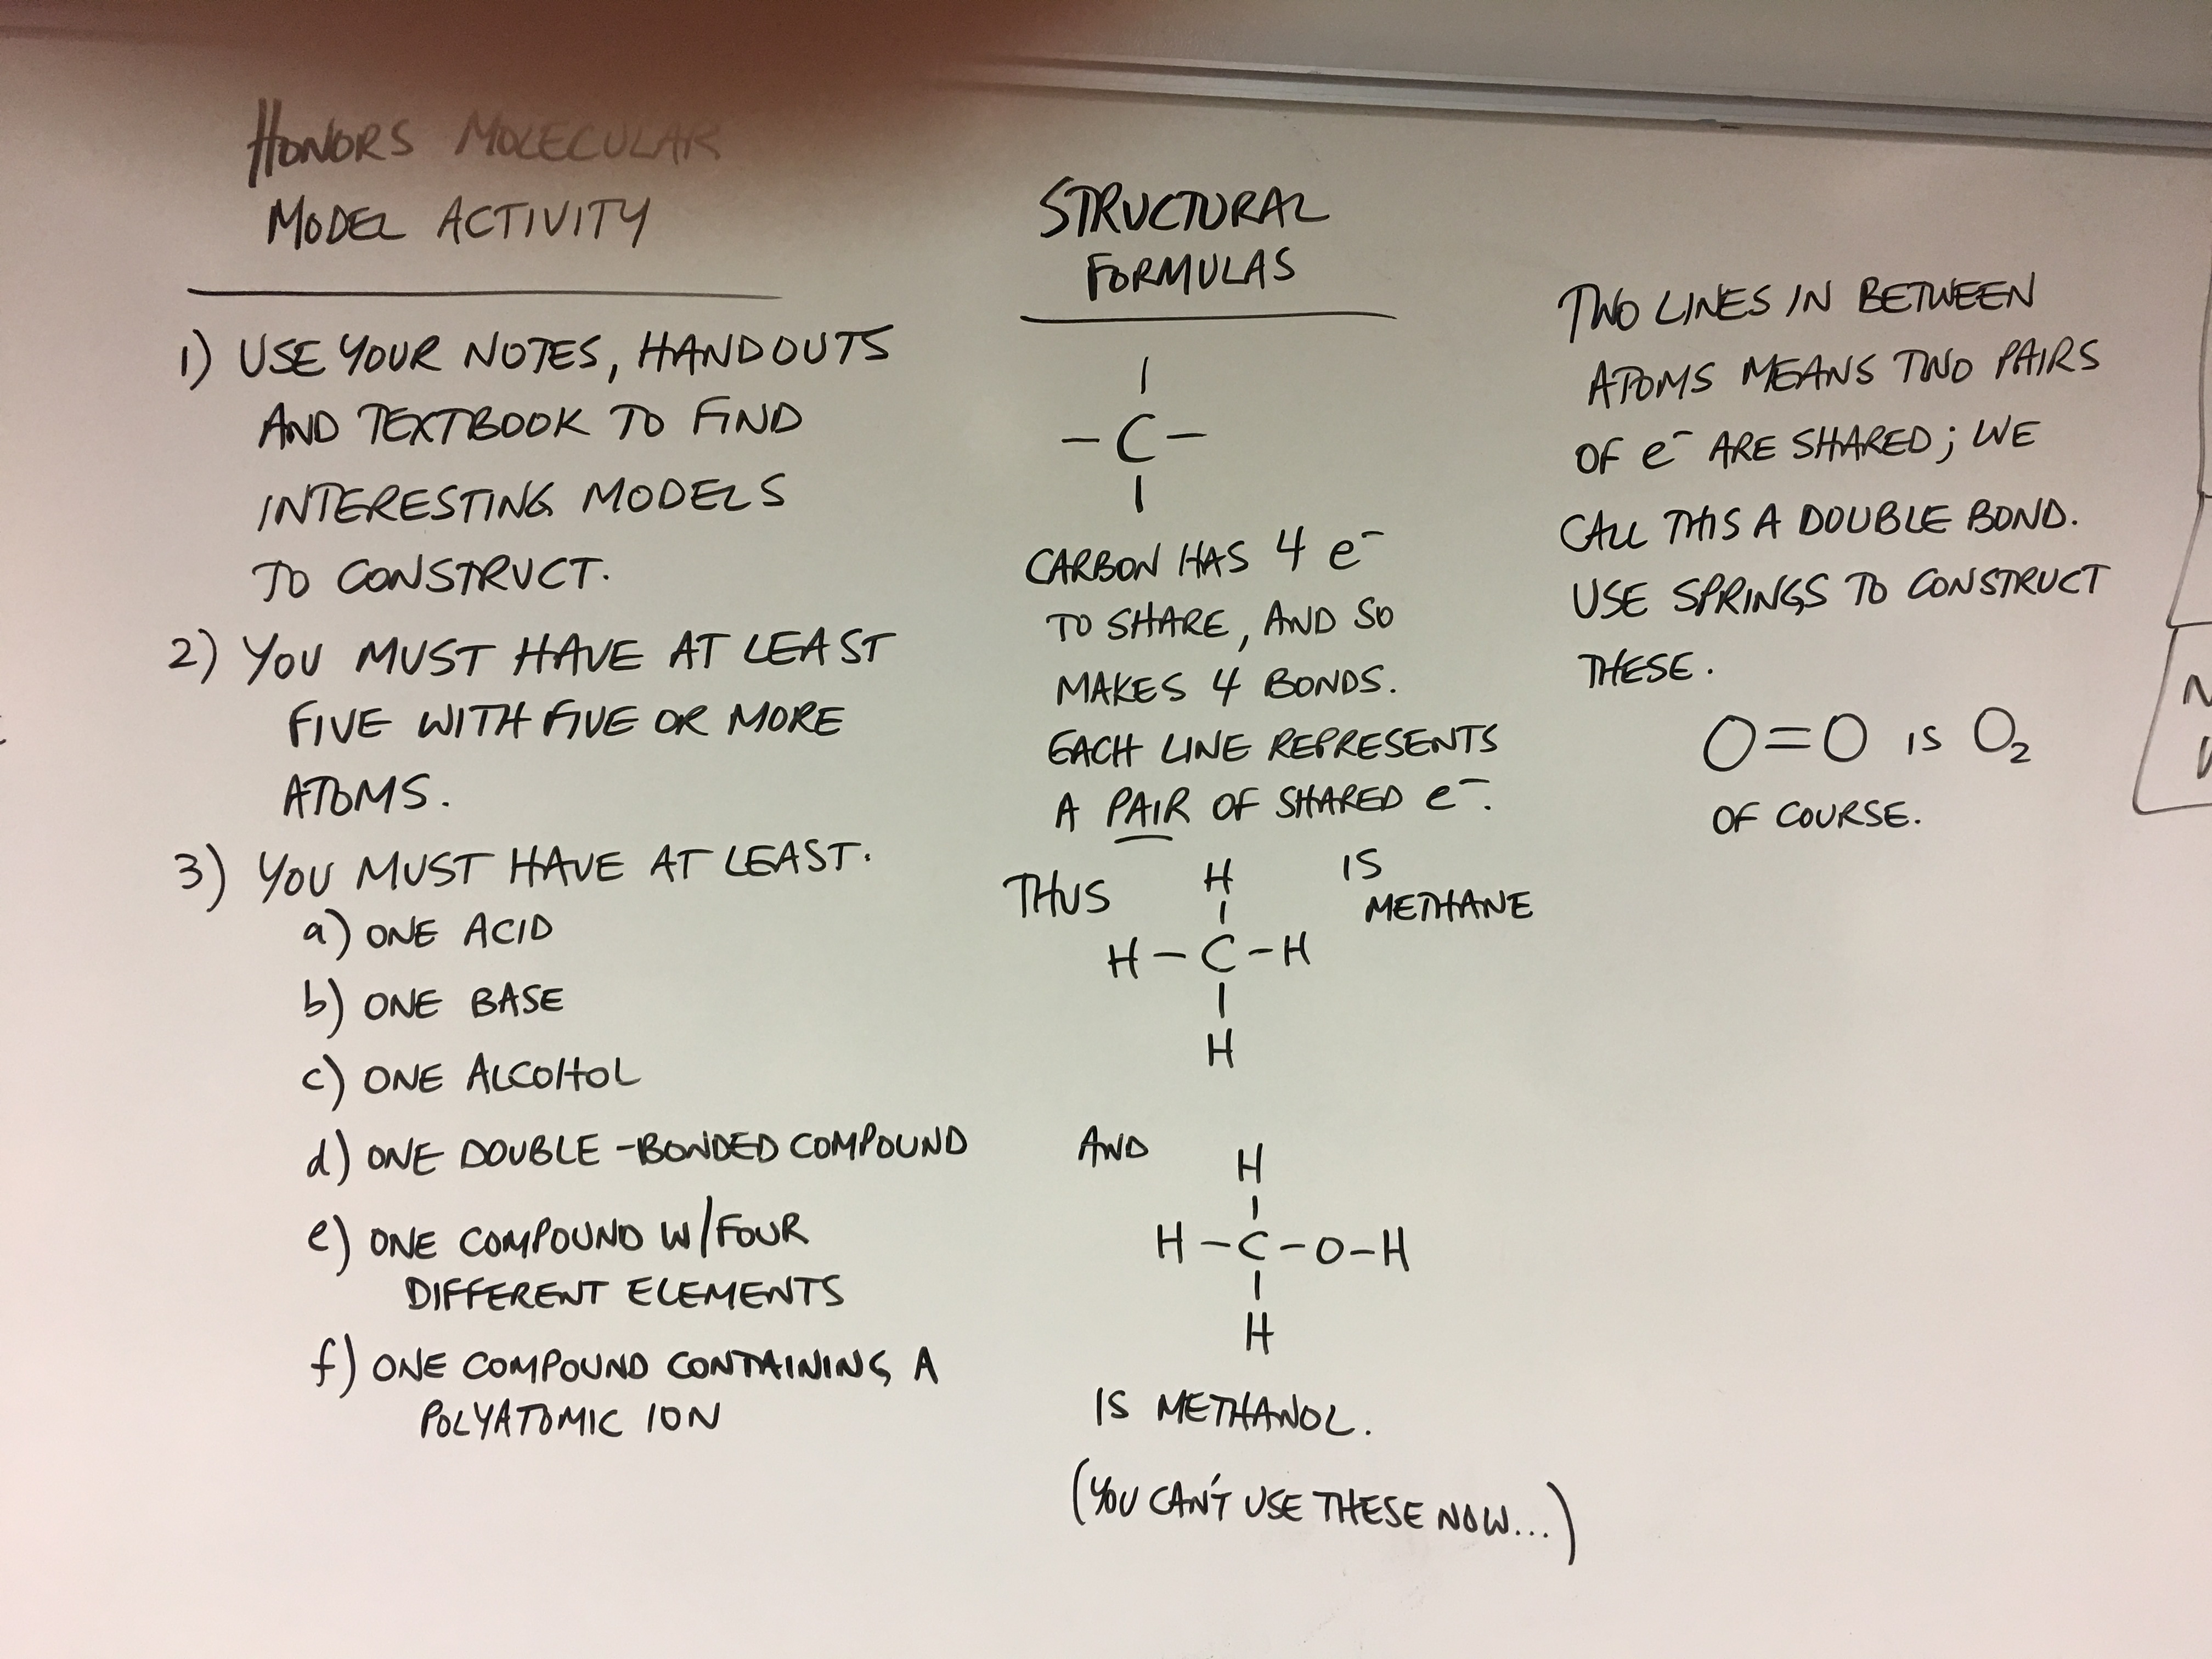 HONORS MOLECULAR
MODEL ACTIVITY
1) USE YOUR NOTES, HANDOUTS
AND TEXTBOOK TO FIND
INTERESTING MODELS
TO CONSTRUCT.
2) YOU MUST HAVE AT LEAST
FIVE WITH FIVE OR MORE
ATOMS.
3) YOU MUST HAVE AT LEAST:
a) ONE ACID
b) ONE BASE
c) ONE ALCOHOL
d) ONE DOUBLE-BONDED COMPOUND
e) ONE COMPOUND W/FOUR
DIFFERENT ELEMENTS
f) ONE COMPOUND CONTAINING A
POLYATOMIC ION
STRUCTURAL
FORMULAS
|
– C –
|
CARBON HAS 4 e⁻
TO SHARE, AND SO
MAKES 4 BONDS.
EACH LINE REPRESENTS
A PAIR OF SHARED e⁻.
THUS H IS
METHANE
|
H – C – H
|
H
AND
H
|
H – C – O – H
|
H
IS METHANOL.
(YOU CAN'T USE THESE NOW...)
TWO LINES IN BETWEEN
ATOMS MEANS TWO PAIRS
OF e⁻ ARE SHARED; WE
CALL THIS A DOUBLE BOND.
USE SPRINGS TO CONSTRUCT
THESE.
O=O IS O₂
OF COURSE.